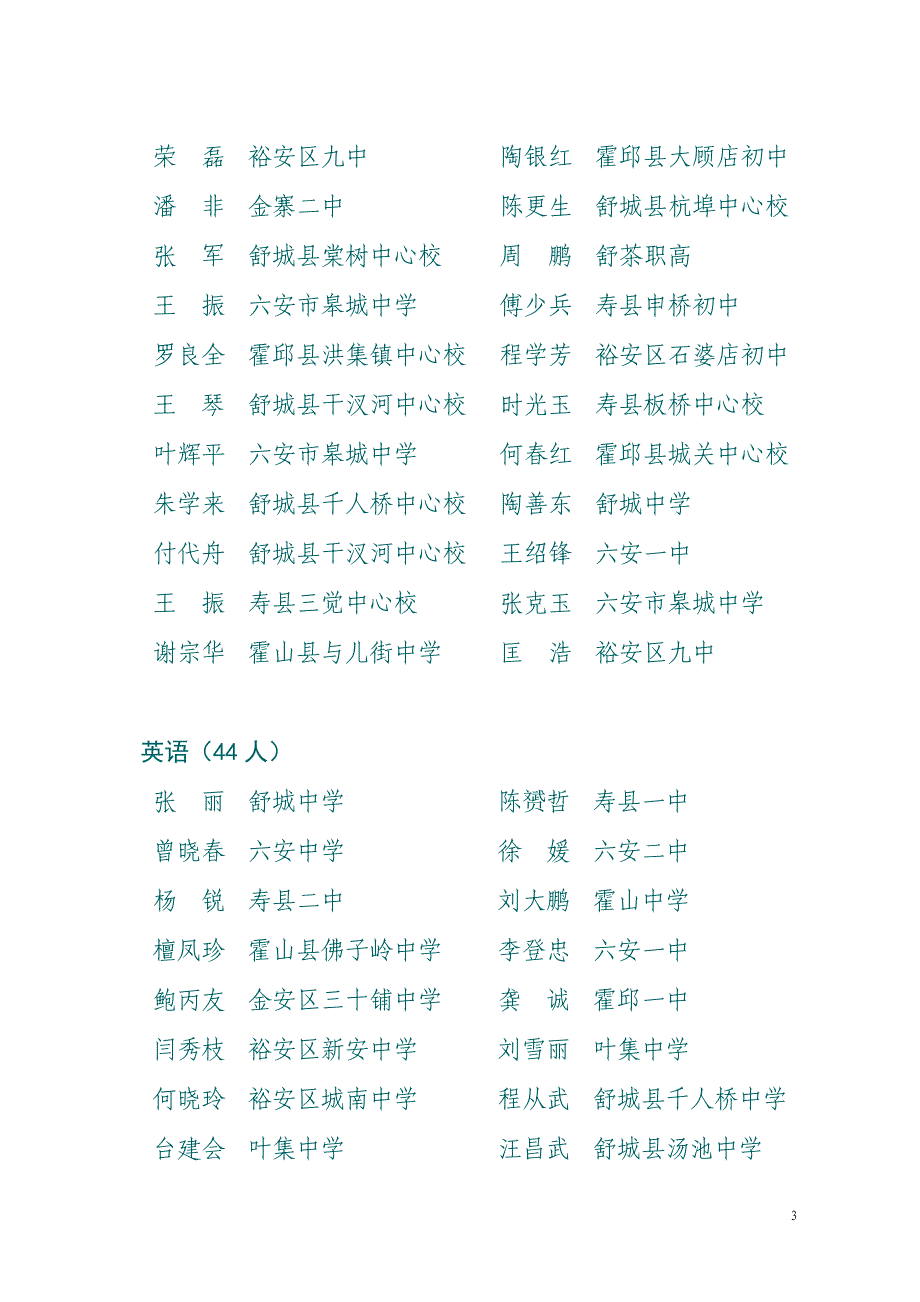 荣　磊　裕安区九中　陶银红　霍邱县大顾店初中
潘　非　金寨二中　陈更生　舒城县杭埠中心校
张　军　舒城县棠树中心校　周　鹏　舒茶职高
王　振　六安市皋城中学　傅少兵　寿县申桥初中
罗良全　霍邱县洪集镇中心校　程学芳　裕安区石婆店初中
王　琴　舒城县干汊河中心校　时光玉　寿县板桥中心校
叶辉平　六安市皋城中学　何春红　霍邱县城关中心校
朱学来　舒城县千人桥中心校　陶善东　舒城中学
付代舟　舒城县干汊河中心校　王绍锋　六安一中
王　振　寿县三觉中心校　张克玉　六安市皋城中学
谢宗华　霍山县与儿街中学　匡　浩　裕安区九中
英语（44 人）
张　丽　舒城中学　陈赟哲　寿县一中
曾晓春　六安中学　徐　媛　六安二中
杨　锐　寿县二中　刘大鹏　霍山中学
檀凤珍　霍山县佛子岭中学　李登忠　六安一中
鲍丙友　金安区三十铺中学　龚　诚　霍邱一中
闫秀枝　裕安区新安中学　刘雪丽　叶集中学
何晓玲　裕安区城南中学　程从武　舒城县千人桥中学
台建会　叶集中学　汪昌武　舒城县汤池中学
3